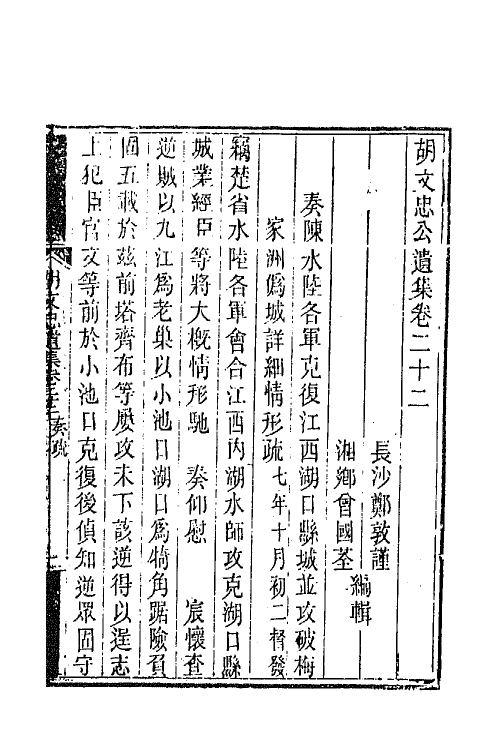 胡文忠公遺集卷二十二
長沙鄭敦謹
湘鄉曾國荃
編輯
奏陳水陸各軍克復江西湖口縣城並攻破梅
家洲僞城詳細情形疏七年十月初二督發
竊楚省水陸各軍會合江西內湖水師攻克湖口縣
城業經臣等將大概情形馳 奏仰慰 宸懷查
逆賊以九江爲老巢以小池口湖口爲犄角踞險負
固五載於茲前塔齊布等屢攻未下該逆得以逞志
上犯臣官文等前於小池口克復後偵知逆眾固守
奏疏